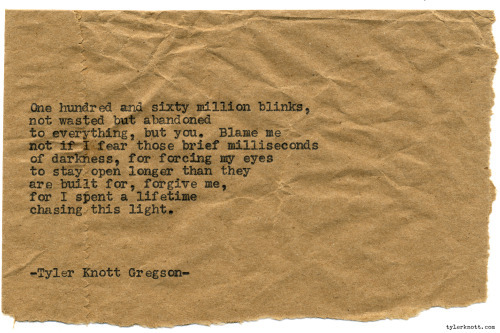 One hundred and sixty million blinks,
not wasted but abandoned
to everything, but you. Blame me
not if I fear those brief milliseconds
of darkness, for forcing my eyes
to stay open longer than they
are built for, forgive me,
for I spent a lifetime
chasing this light.
-Tyler Knott Gregson-
tylerknott.com